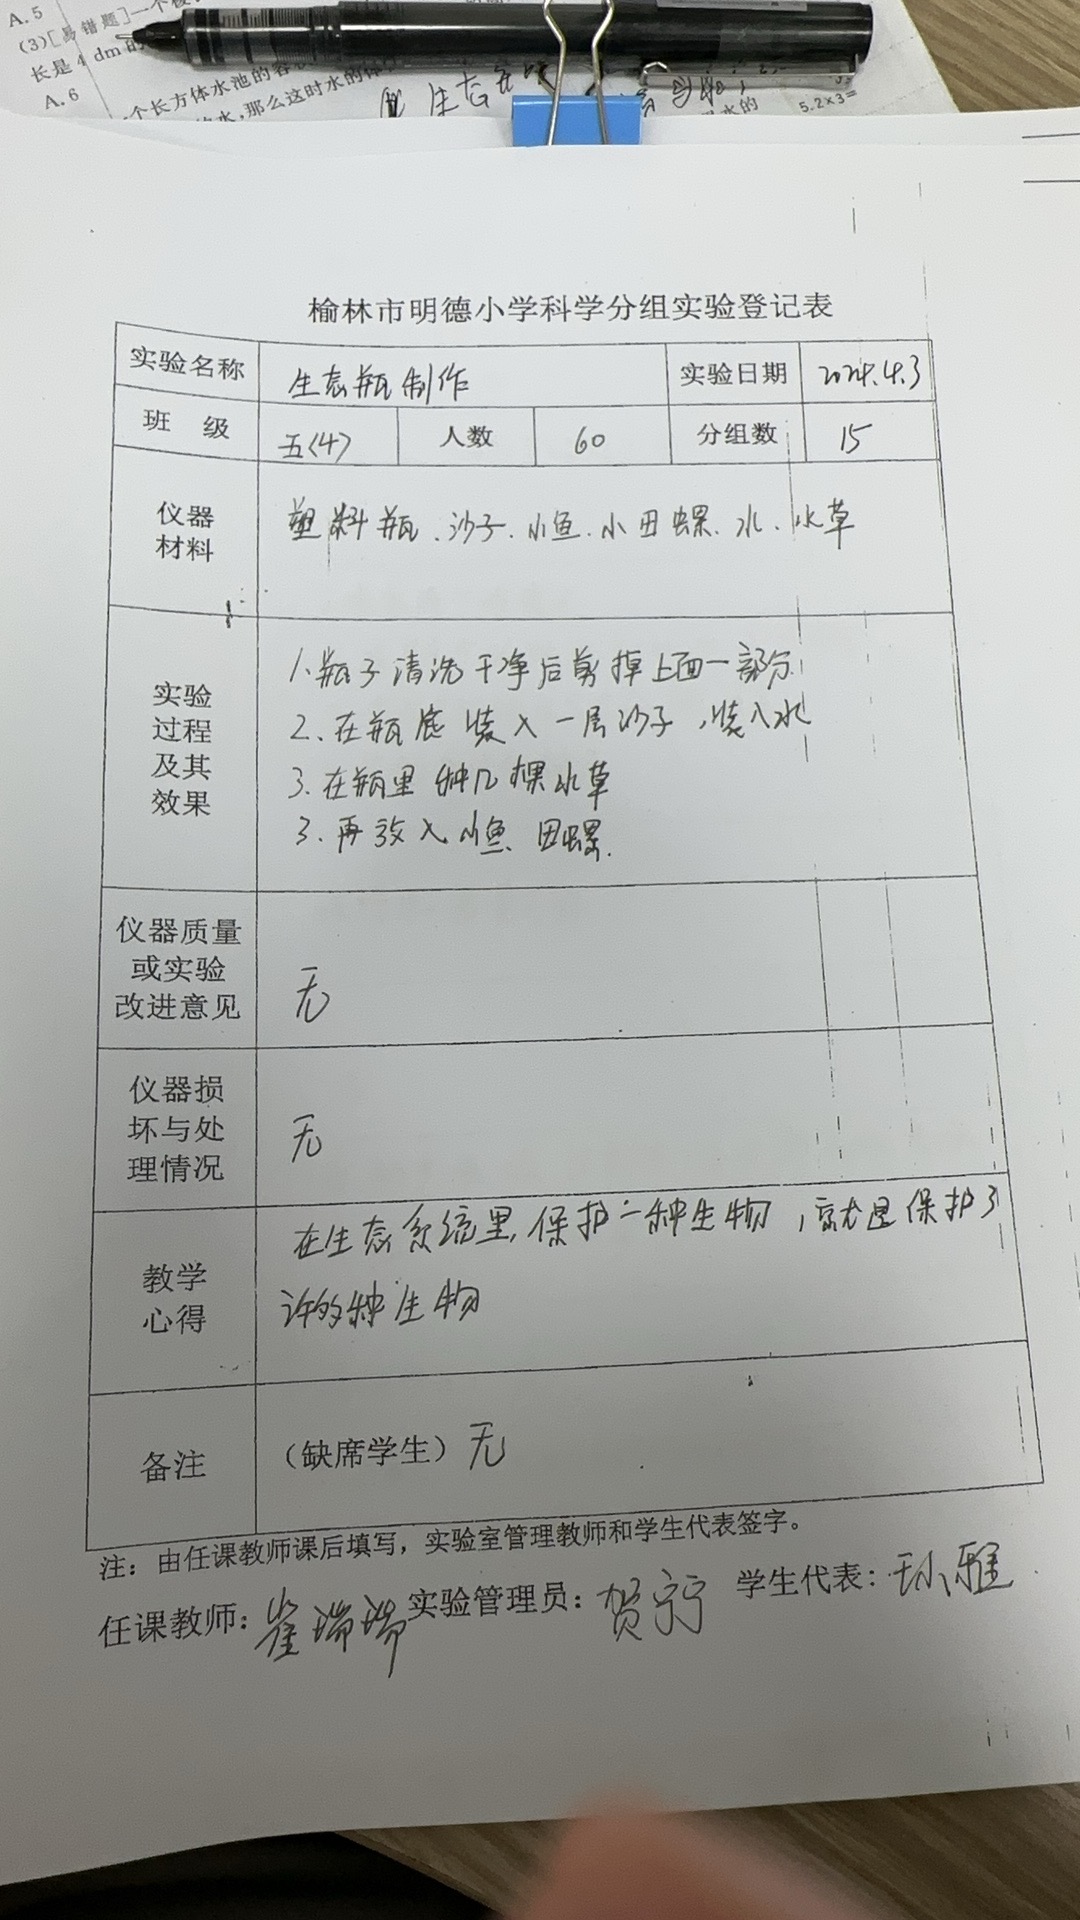 A.5
(3)[易错题]一个
长是4 dm的
A.6
个长方体水池的容
水,那么这时水的体
生态
5.2×3=
榆林市明德小学科学分组实验登记表
实验名称 生态瓶制作 实验日期 2024.4.3
班 级 五(4) 人数 60 分组数 15
仪器
材料
塑料瓶、沙子、小鱼、小田螺、水、水草
实验
过程
及其
效果
1、瓶子清洗干净后剪掉上面一部分
2、在瓶底装入一层沙子,装入水
3、在瓶里种几棵水草
3、再放入小鱼、田螺.
仪器质量
或实验
改进意见
无
仪器损
坏与处
理情况
无
教学
心得
在生态系统里,保护一种生物,就是保护了
许多种生物
备注
(缺席学生)无
注:由任课教师课后填写,实验室管理教师和学生代表签字。
任课教师:崔瑞瑞 实验管理员:贺宁宁 学生代表:孙雅